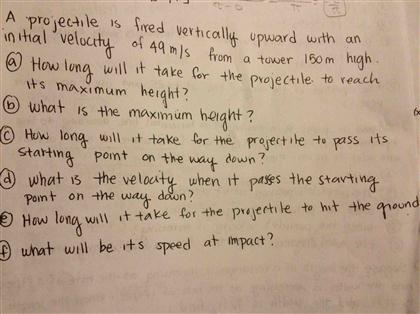 A projectile is fired vertically upward with an
initial velocity of 49 m/s from a tower 150m high.
(a) How long will it take for the projectile to reach
its maximum height?
(b) what is the maximum height?
(c) How long will it take for the projectile to pass its
starting point on the way down?
(d) what is the velocity when it passes the starting
point on the way down?
(e) How long will it take for the projectile to hit the ground
(f) what will be its speed at impact?